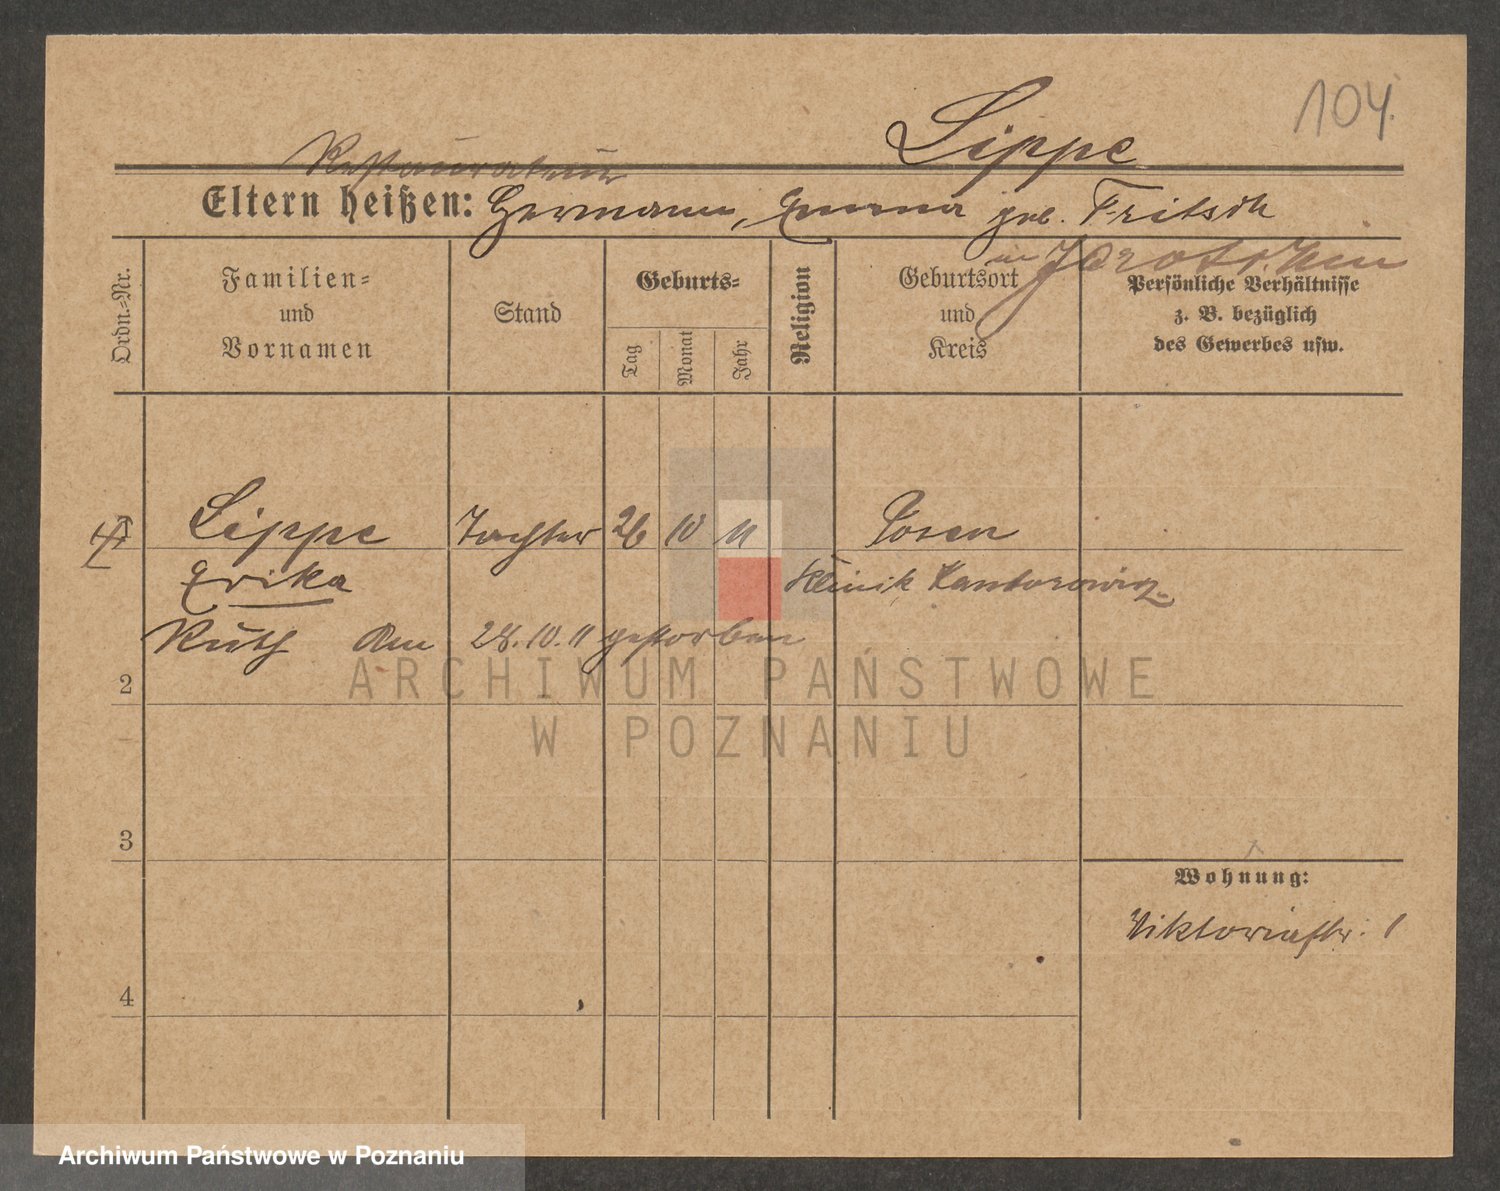 104.
Lippe
Restaurateur
Eltern heißen: Hermann, Emma geb. Fritsch
in Jarotschin
Ordn.-Nr.
Familien-
und
Vornamen
Stand
Geburts-
Tag
Monat
Jahr
Religion
Geburtsort
und
Kreis
Persönliche Verhältnisse
z. B. bezüglich
des Gewerbes usw.
Lippe Tochter 26 10 11 Posen
Erika Klinik Kantorowicz
Ruth Am 28.10.11 gestorben
2
ARCHIWUM PAŃSTWOWE
W POZNANIU
3
Wohnung:
Viktoriastr. 1
4
Archiwum Państwowe w Poznaniu